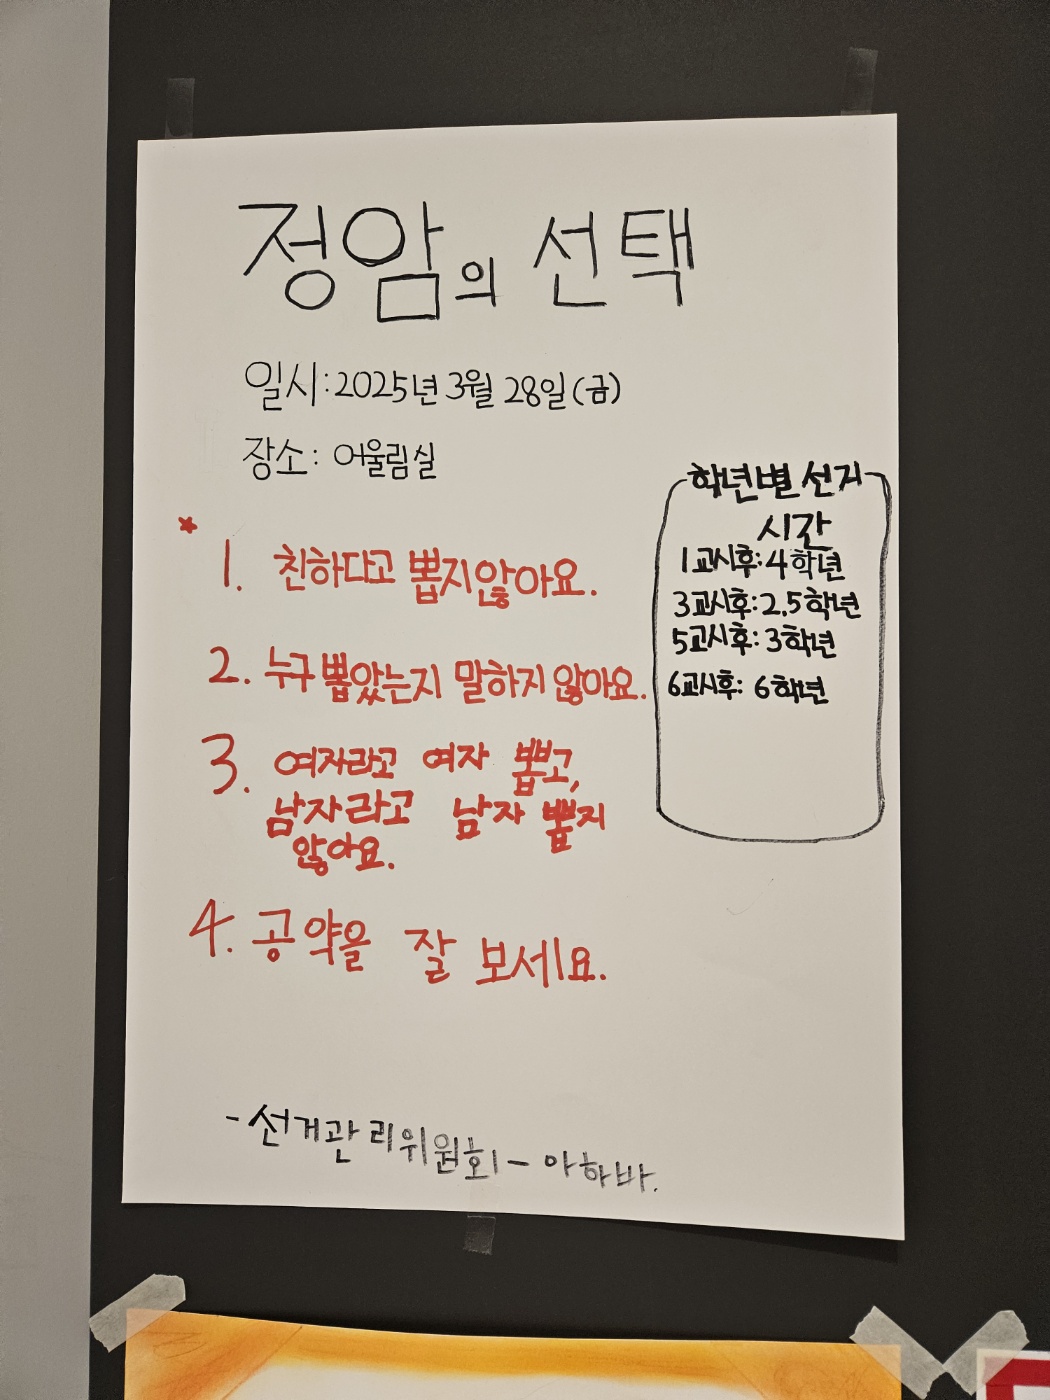 정암의 선택
일시: 2025년 3월 28일(금)
장소: 어울림실
*
1. 친하다고 뽑지않아요.
2. 누구 뽑았는지 말하지 않아요.
3. 여자라고 여자 뽑고,
남자라고 남자 뽑지
않아요.
4. 공약을 잘 보세요.
학년별 선거
시간
1교시후: 4학년
3교시후: 2.5학년
5교시후: 3학년
6교시후: 6학년
- 선거관리위원회 - 아하바.